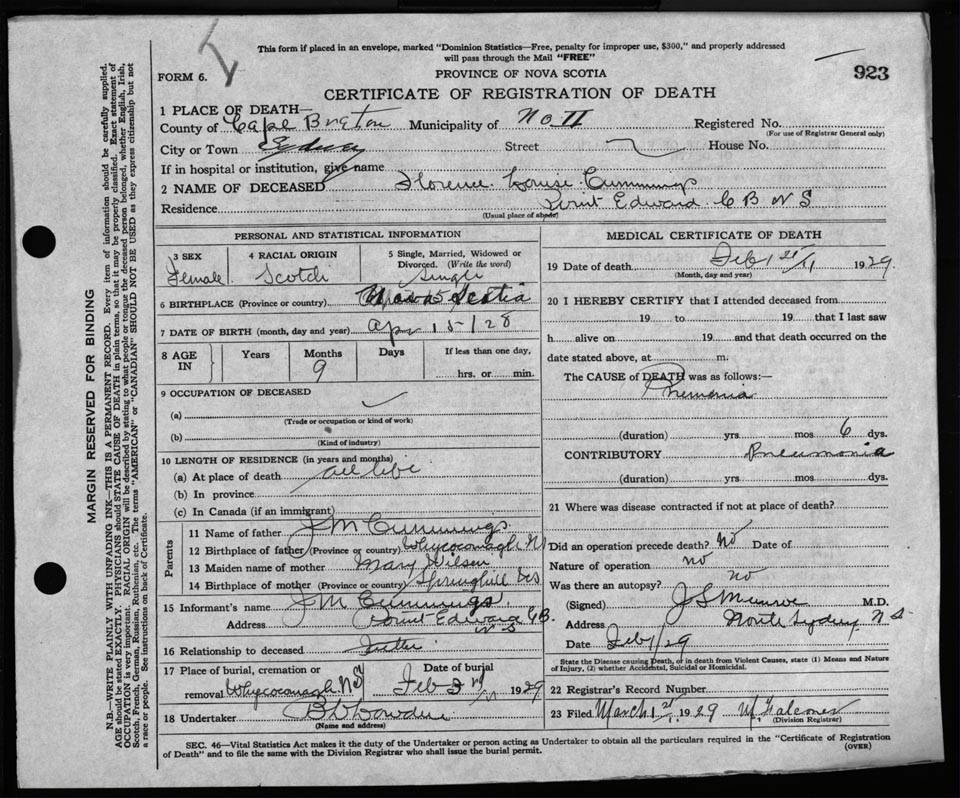 This form if placed in an envelope, marked "Dominion Statistics—Free, penalty for improper use, $300," and properly addressed
will pass through the Mail "FREE"
923
FORM 6.
PROVINCE OF NOVA SCOTIA
CERTIFICATE OF REGISTRATION OF DEATH
1 PLACE OF DEATH—
County of Cape Breton Municipality of No II Registered No.
(For use of Registrar General only)
City or Town Sydney Street House No.
If in hospital or institution, give name
2 NAME OF DECEASED Florence Louise Cummings
Residence Point Edward C B N S
(Usual place of abode)
PERSONAL AND STATISTICAL INFORMATION
3 SEX 4 RACIAL ORIGIN 5 Single, Married, Widowed or
Divorced. (Write the word)
Female Scotch Single
6 BIRTHPLACE (Province or country) Nova Scotia
7 DATE OF BIRTH (month, day and year) Apr 15/28
8 AGE IN Years Months Days If less than one day,
9 hrs. or min.
9 OCCUPATION OF DECEASED
(a)
(Trade or occupation or kind of work)
(b)
(Kind of industry)
10 LENGTH OF RESIDENCE (in years and months)
(a) At place of death all life
(b) In province
(c) In Canada (if an immigrant)
Parents
11 Name of father J M Cummings
12 Birthplace of father (Province or country) Whycocomagh NS
13 Maiden name of mother Mary Wilson
14 Birthplace of mother (Province or country) Springhill NS
15 Informant's name J M Cummings
Address Point Edward CB
N S
16 Relationship to deceased Father
17 Place of burial, cremation or Date of burial
removal Whycocomagh NS Feb 3rd 1929
18 Undertaker
(Name and address)
MEDICAL CERTIFICATE OF DEATH
19 Date of death Feb 1st 1929
(Month, day and year)
20 I HEREBY CERTIFY that I attended deceased from
19 to 19 that I last saw
h alive on 19 and that death occurred on the
date stated above, at m.
The CAUSE of DEATH was as follows:—
Pnemonia
(duration) yrs mos 6 dys.
CONTRIBUTORY Pneumonia
(duration) yrs mos dys.
21 Where was disease contracted if not at place of death?
Did an operation precede death? No Date of
Nature of operation no
Was there an autopsy? no
(Signed) J S Munro M.D.
Address North Sydney N S
Date Feb 1/29
State the Disease causing Death, or in death from Violent Causes, state (1) Means and Nature
of Injury, (2) whether Accidental, Suicidal or Homicidal.
22 Registrar's Record Number
23 Filed March 1st 1929 Falconer
(Division Registrar)
SEC. 46—Vital Statistics Act makes it the duty of the Undertaker or person acting as Undertaker to obtain all the particulars required in the "Certificate of Registration
of Death" and to file the same with the Division Registrar who shall issue the burial permit.
(OVER)
MARGIN RESERVED FOR BINDING
N.B.—WRITE PLAINLY WITH UNFADING INK—THIS IS A PERMANENT RECORD. Every item of information should be carefully supplied.
AGE should be stated EXACTLY. PHYSICIANS should STATE CAUSE OF DEATH in plain terms, so that it may be properly classified. Exact statement of
OCCUPATION is very important. RACIAL ORIGIN will be described by stating to what people or tongue the deceased person belonged, whether English, Irish,
Scotch, French, German, Russian, Ruthenian, etc. The terms "AMERICAN" or "CANADIAN" SHOULD NOT BE USED as they express citizenship but not
a race or people. See instructions on back of Certificate.